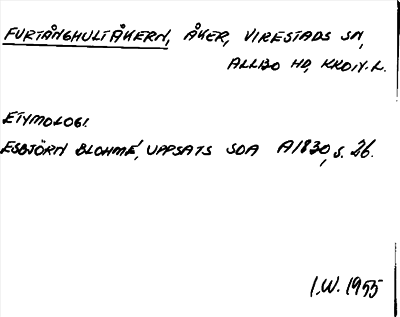 FURTÅNGHULTÅKERN, ÅKER, VIRESTADS SN,
ALLBO HD, KRON. L.
ETYMOLOGI.
ESBJÖRN BLOHMÉ, UPPSATS SOA A1830, s. 26.
I.W. 1955